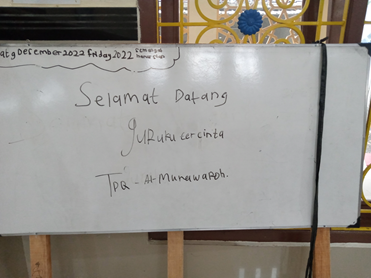 at 9 December 2022 Friday 2022
Selamat Datang
guruku tercinta
TPQ - Al Munawaroh.